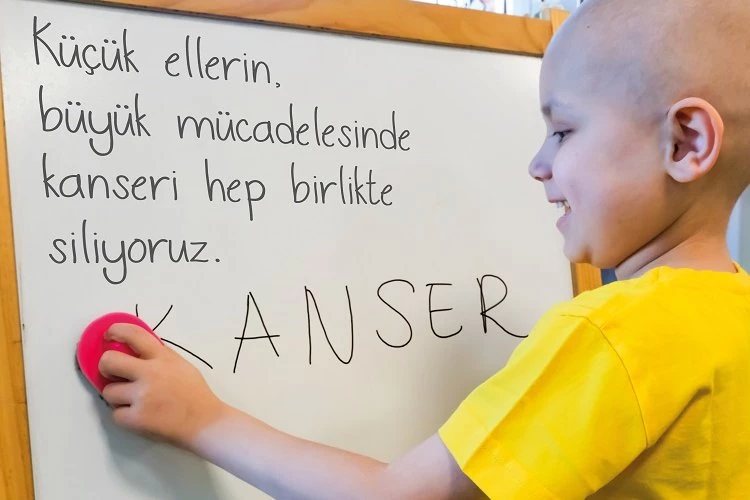 Küçük ellerin,
büyük mücadelesinde
kanseri hep birlikte
siliyoruz.
KANSER